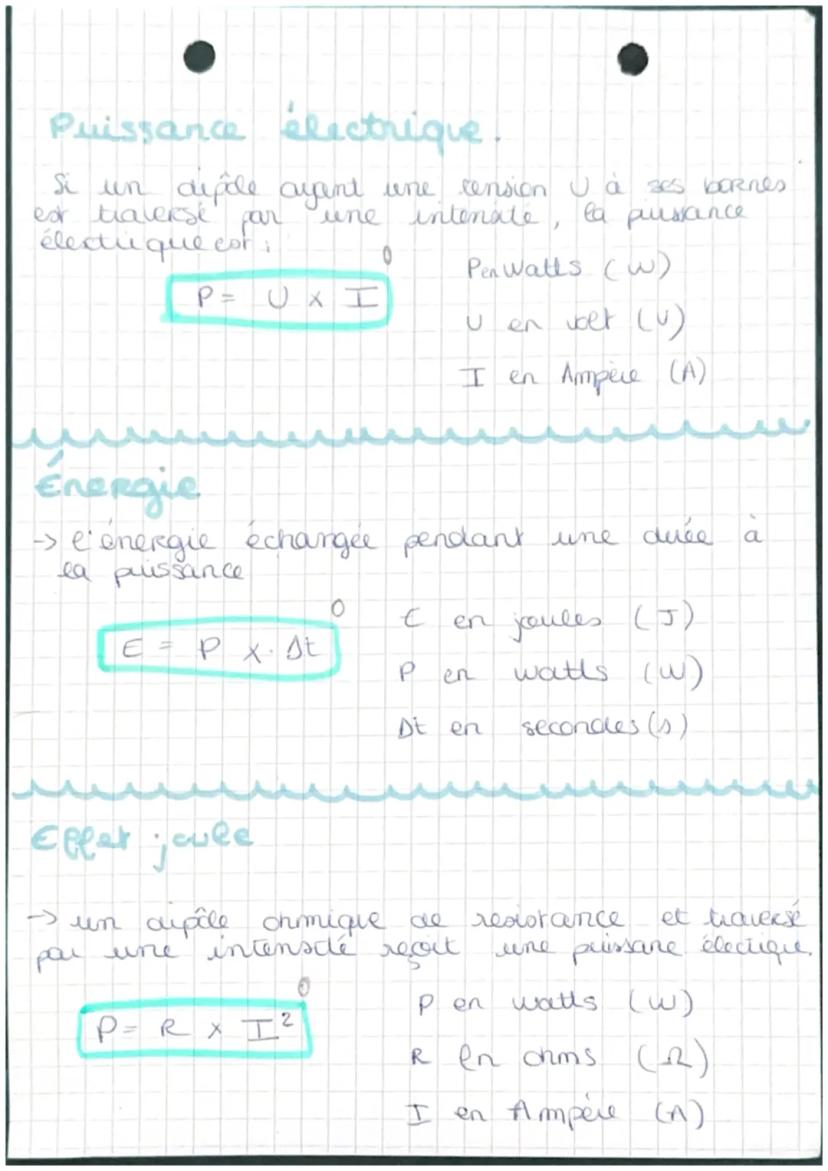 Puissance électrique.
Si un dipôle ayant une tension U à ses bornes
est traversé par une intensité, la puissance
électrique est :
P = U x I
P en Watts (W)
U en volt (V)
I en Ampère (A)
Énergie
-> l'énergie échangée pendant une durée à
la puissance
E = P x. Δt
E en joules (J)
P en watts (W)
Δt en secondes (s)
Effet joule
-> un dipôle ohmique de resistance et traversé
par une intensité reçoit une puissane électrique.
P = R x I²
P en watts (W)
R en ohms (Ω)
I en Ampère (A)